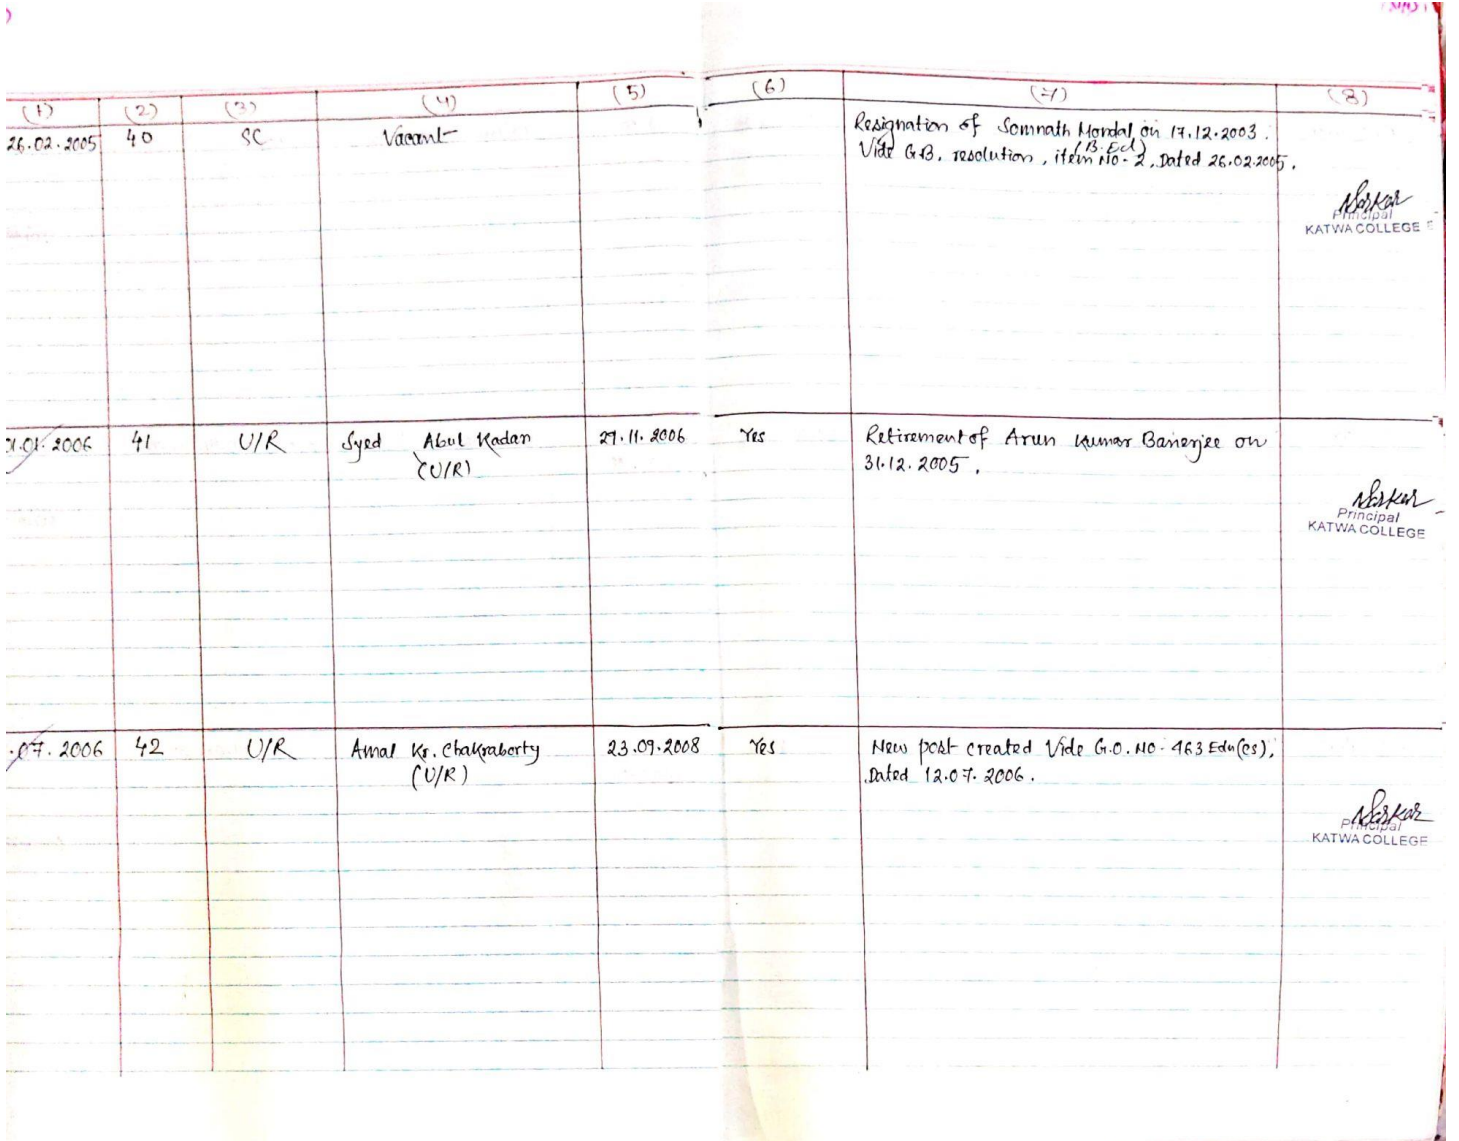 (1) (2) (3) (4) (5) (6) (7) (8)
26.02.2005 40 SC Vacant Resignation of Somnath Mondal on 17.12.2003.
(B.Ed)
Vide G.B. resolution, item No-2, Dated 26.02.2005.
Sarkar
Principal
KATWA COLLEGE
01.01.2006 41 U/R Syed Abul Kadan 29.11.2006 Yes Retirement of Arun Kumar Banerjee on
(U/R) 31.12.2005.
Sarkar
Principal
KATWA COLLEGE
.07.2006 42 U/R Amal Kr. Chakraborty 23.09.2008 Yes New post created Vide G.O. NO- 463 Edn(cs),
(U/R) Dated 12.07.2006.
Sarkar
Principal
KATWA COLLEGE